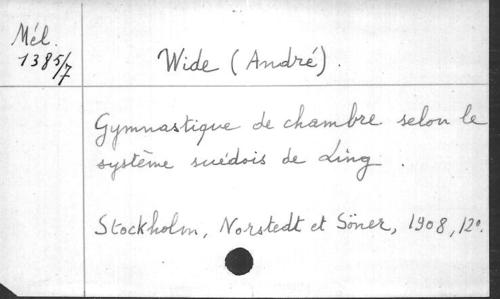 Mél.
1385/7
Wide (André).
Gymnastique de chambre selon le
système suédois de Ling.
Stockholm, Norstedt et Söner, 1908, 12°.